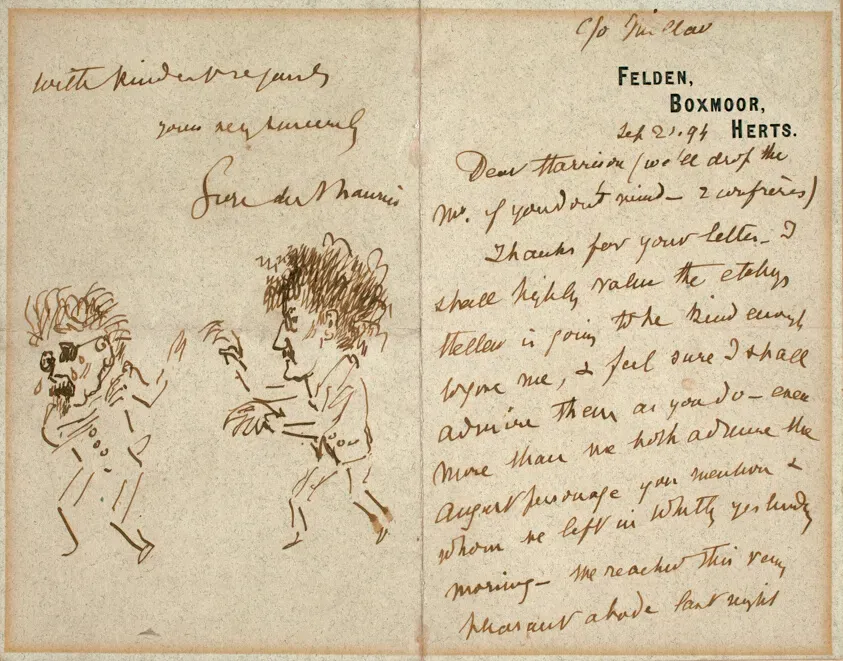 c/o
FELDEN,
BOXMOOR,
HERTS.
Sep 21. 94
Dear Harrison (we'll drop the
Mr. if you don't mind — 2 confrères)
Thanks for your letter — I
shall highly value the etchgs
Helleu is going to be kind enough
to give me, & feel sure I shall
admire them as you do — even
more than we both admire the
August personage you mention &
whom we left in Whitby yesterday
morning — We reached this very
pleasant abode last night
with kindest regards
yours very sincerely
du Maurier